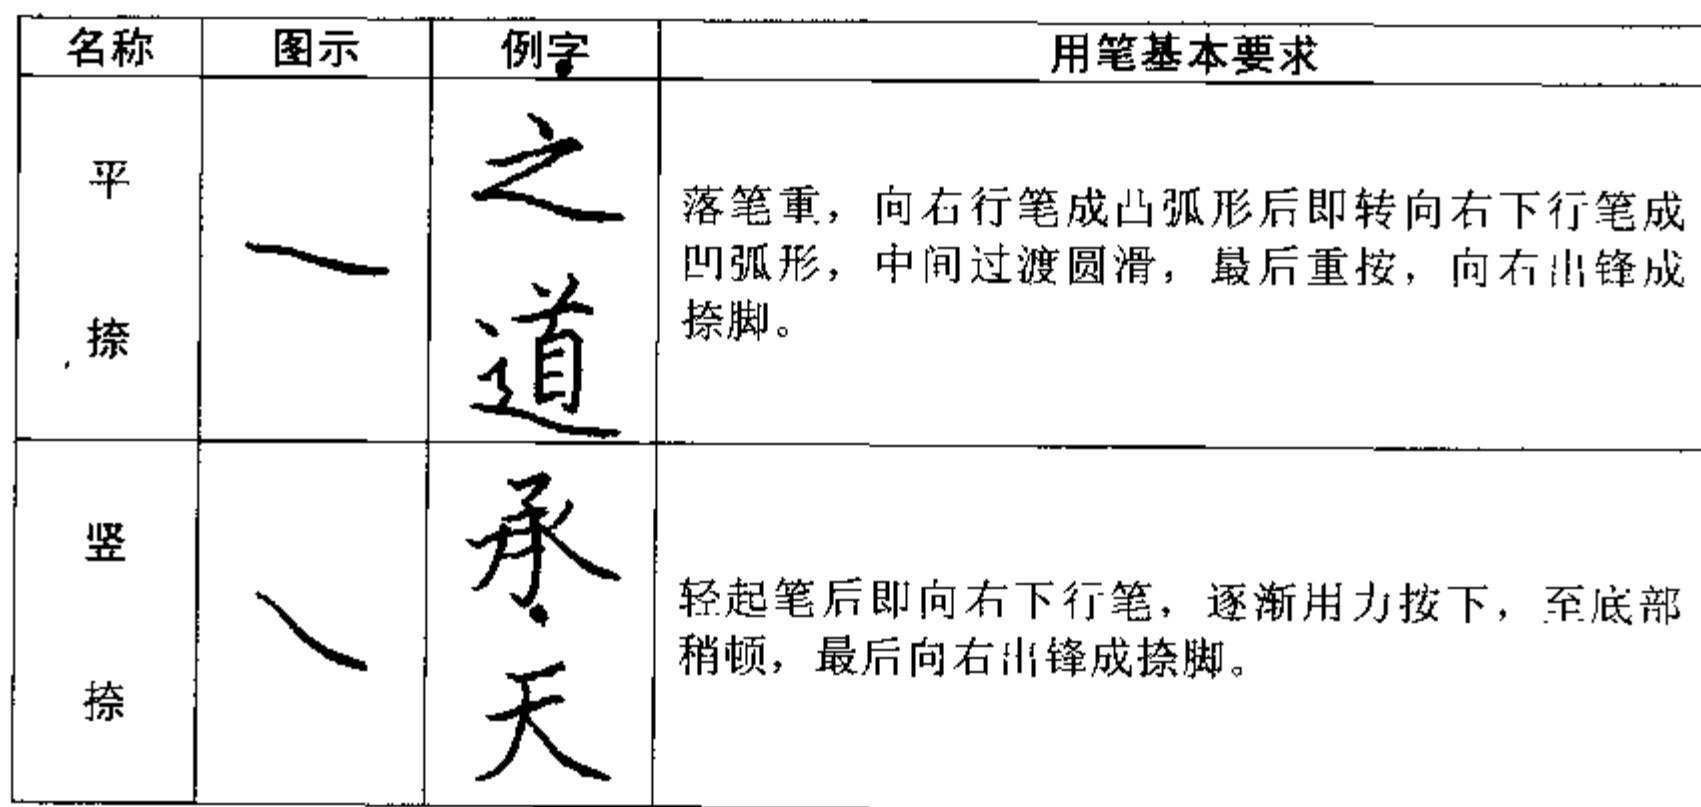 名称 图示 例字 用笔基本要求
平捺
之
道
落笔重，向右行笔成凸弧形后即转向右下行笔成
凹弧形，中间过渡圆滑，最后重按，向右出锋成
捺脚。
竖捺
承
天
轻起笔后即向右下行笔，逐渐用力按下，至底部
稍顿，最后向右出锋成捺脚。